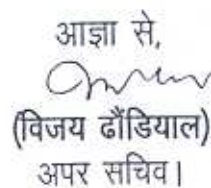 आज्ञा से,
(विजय ढौंडियाल)
अपर सचिव।